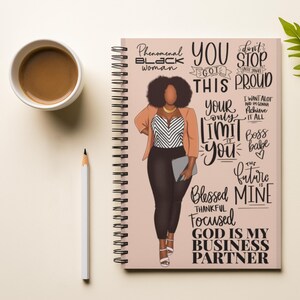 Phenomenal
BLACK
woman
YOU
GOT
THIS
don't
STOP
until you're
PROUD
YOUR
only
LIMIT
is
YOU
I WANT IT ALL
AND I'M GONNA
Achieve
IT ALL
Boss
babe
THE
future
IS
MINE
Blessed
THANKFUL
Focused
GOD IS MY
BUSINESS
PARTNER